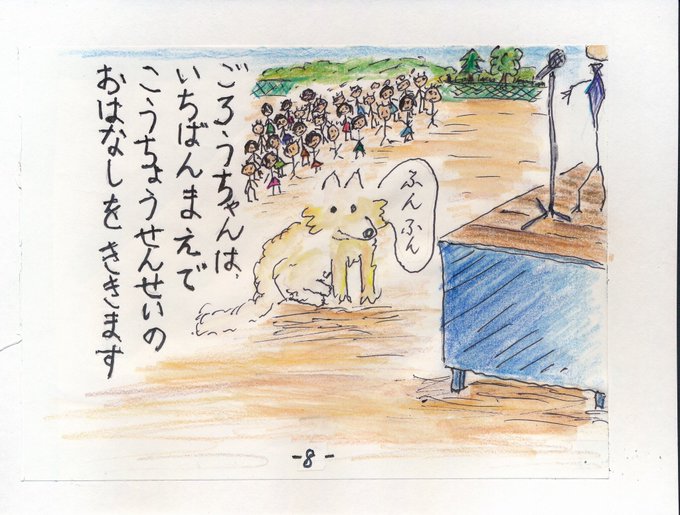 ごろうちゃんは、
いちばんまえで
こうちょうせんせいの
おはなしをききます
ふんふん
-8-